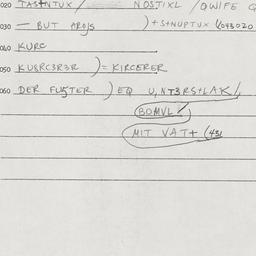 020 TASTNTUX / NOSTIXL / QWIFE G
030 — BUT AROJS ) + S+NUPTUX (1043020
040 KURC
050 KUSRC3R3R ) = KIRCERER
060 DER FUSTER ) EQ U, NT3RS+LAK /,
(BOMVL /)
(MIT VAT+ (431